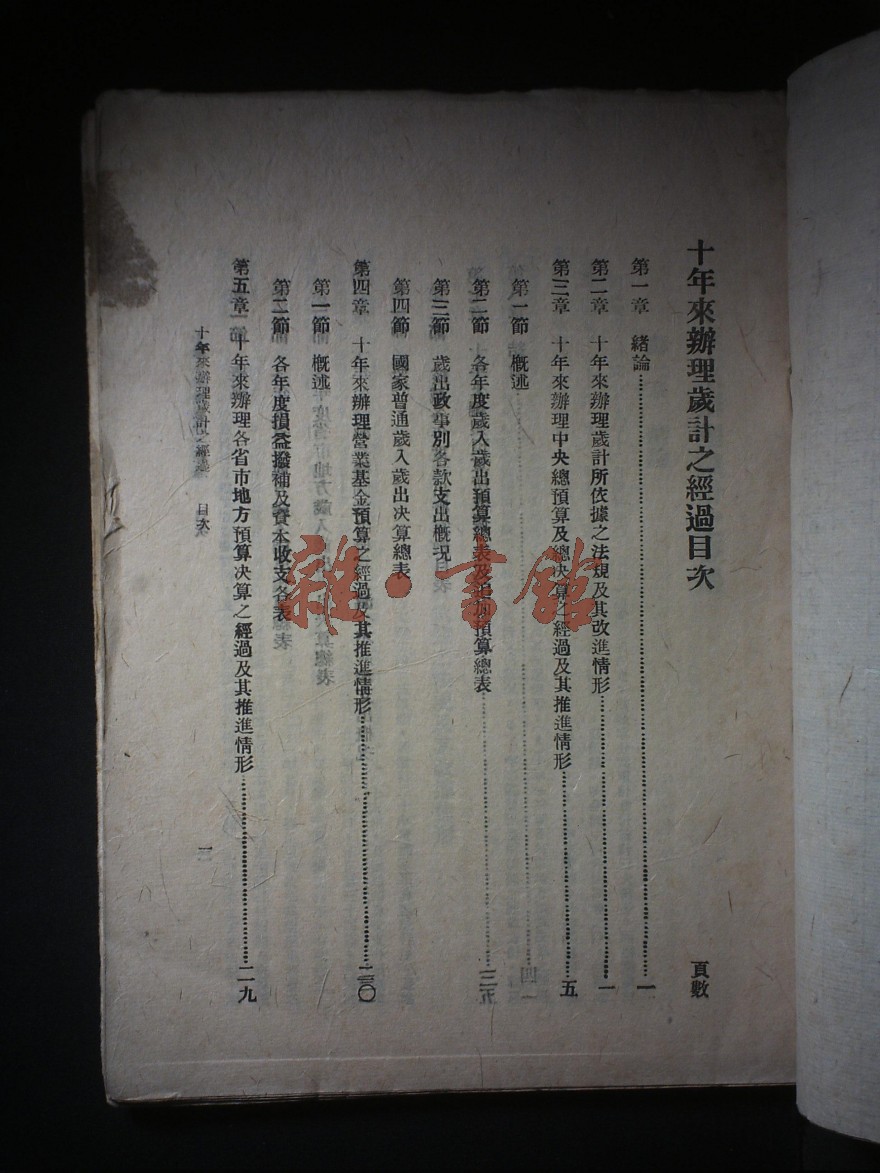 十年來辦理歲計之經過目次
頁數
第一章 緒論……一
第二章 十年來辦理歲計所依據之法規及其改進情形……一
第三章 十年來辦理中央總預算及總決算之經過及其推進情形……五
第一節 概述
第二節 各年度歲入歲出預算總表及追加預算總表
第三節 歲出政事別各款支出概况
第四節 國家普通歲入歲出决算總表
第四章 十年來辦理營業基金預算之經過及其推進情形
第一節 概述
第二節 各年度損益撥補及資本收支各表
第五章 十年來辦理各省市地方預算决算之經過及其推進情形……二九
十年來辦理歲計之經過 目次
一
雜·書館